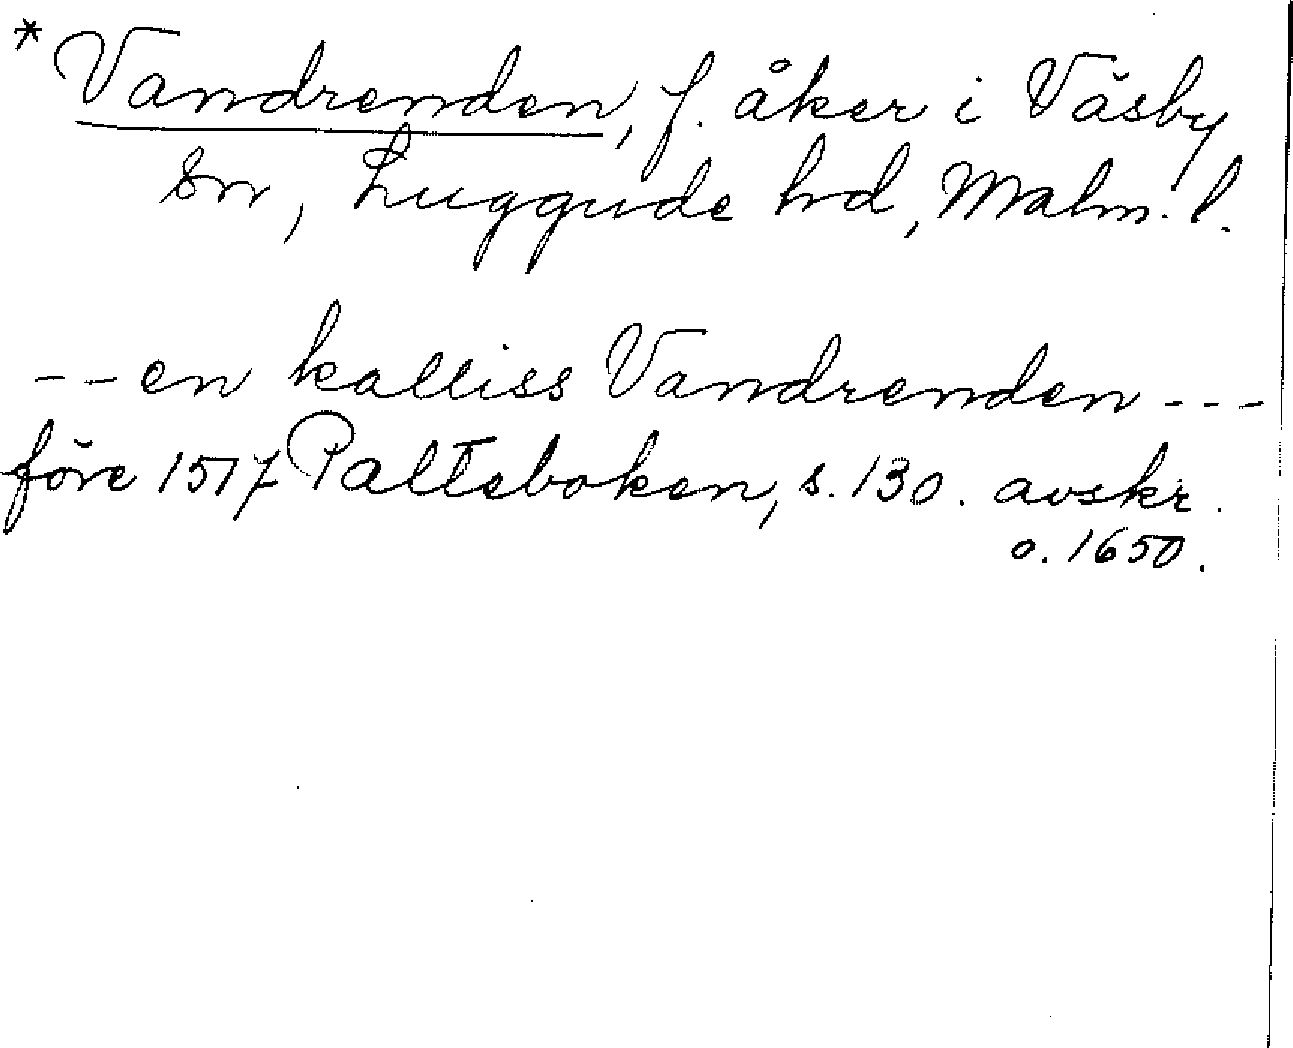 * Vandrenden, f. åker i Väsby
sn, Luggude hd, Malm. l.
-- en kalliss Vandrenden ---
före 1517 Palteboken, s. 130. avskr.
o. 1650.